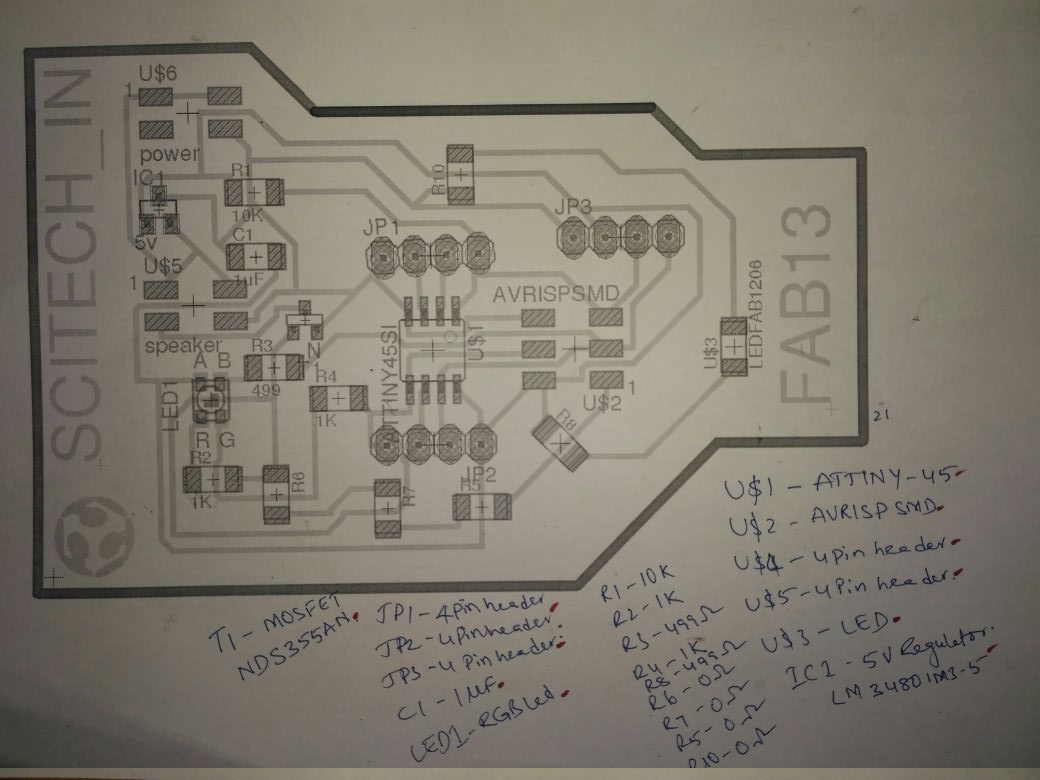 SCITECH_IN
U$6
1
power
IC1
5v
R1
10K
C1
1uF
U$5
1
speaker
A B
LED1
R G
R3
499
N
1
R4
1K
R2
1K
R6
R7
R5
JP1
JP2
JP3
R10
ATTINY45SI
U$1
AVRISPSMD
1
U$2
R8
U$3
LEDFAB1206
FAB13
21
T1 - MOSFET
NDS355AN.
JP1 - 4Pin header
JP2 - 4Pinheader.
JP3 - 4 Pin header.
C1 - 1uF.
LED1 - RGB Led.
R1 - 10K
R2 - 1K
R3 - 499Ω
R4 - 1K
R8 - 499Ω
R6 - 0Ω
R7 - 0Ω
R5 - 0Ω
R10 - 0Ω
U$1 - ATTINY-45
U$2 - AVRISP SMD.
U$4 - 4pin header.
U$5 - 4Pin header.
U$3 - LED.
IC1 - 5V Regulator.
LM3480IM3-5